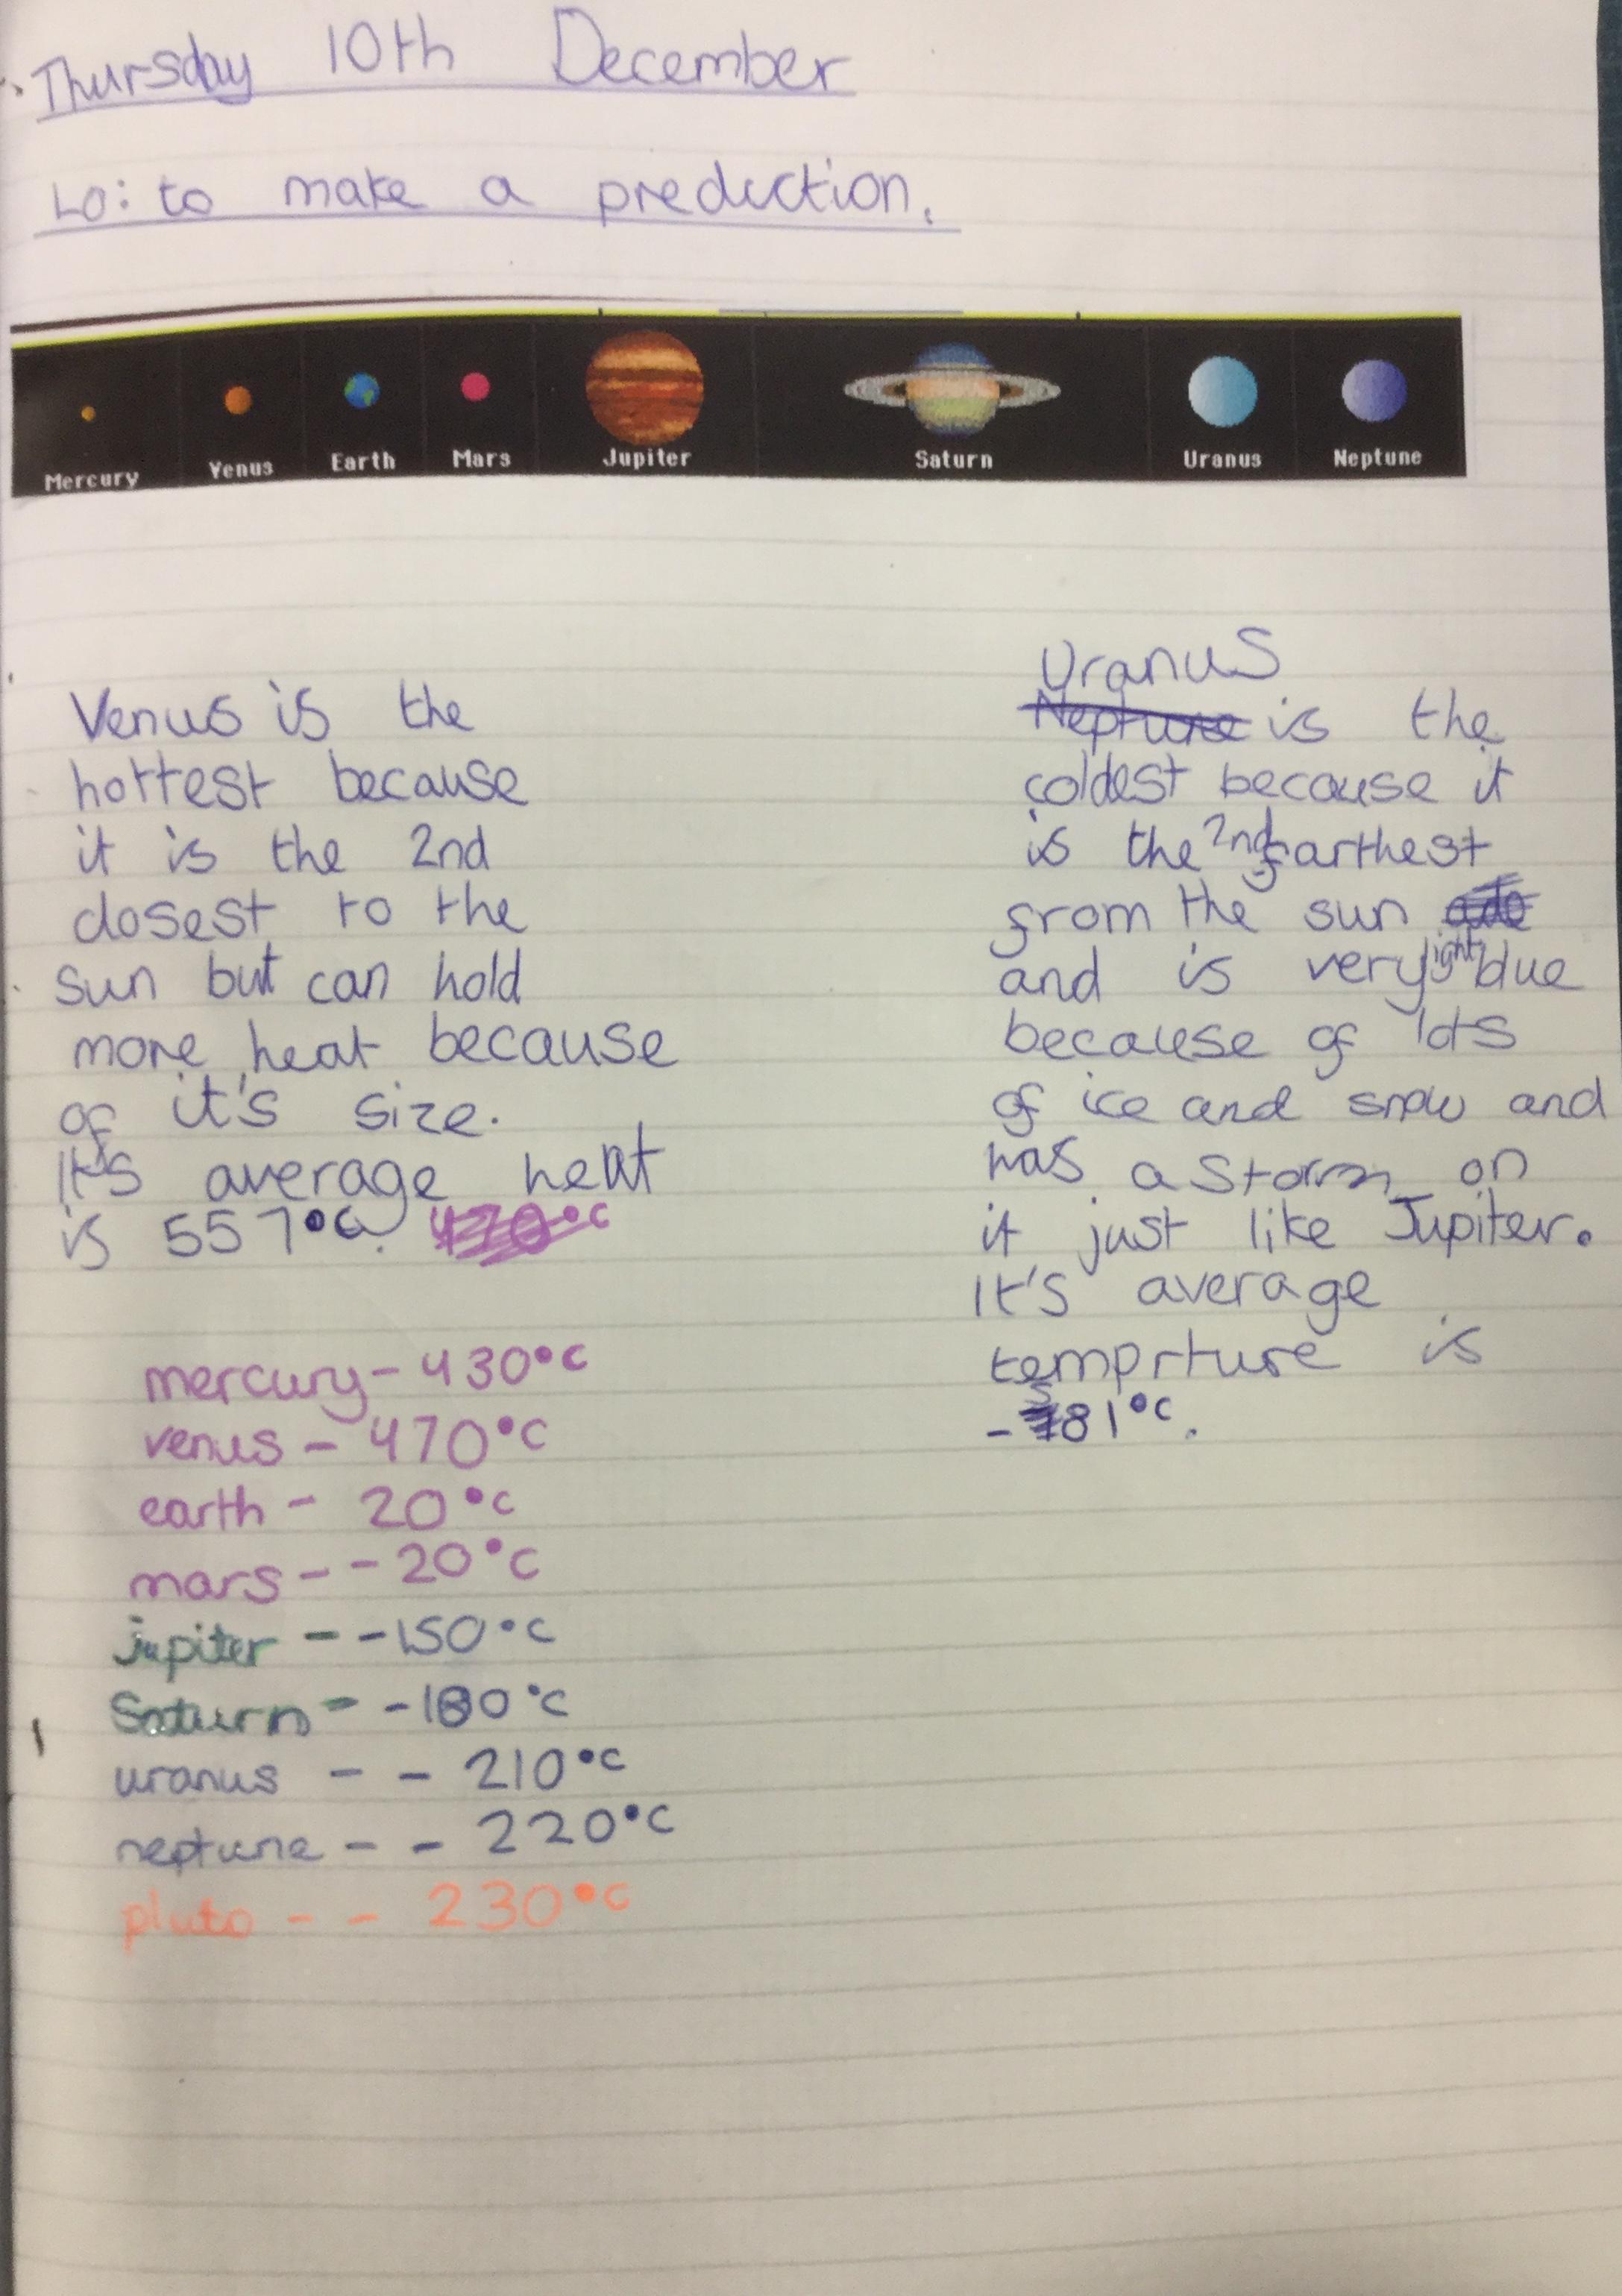 Thursday 10th December
LO: to make a prediction.
Mercury Venus Earth Mars Jupiter Saturn Uranus Neptune
Venus is the
hottest because
it is the 2nd
closest to the
sun but can hold
more heat because
of it's size.
It's average heat
is 557°C. 470°C
mercury - 430°C
venus - 470°C
earth - 20°C
mars - -20°C
jupiter - -150°C
Saturn - -180°C
uranus - - 210°C
neptune - - 220°C
pluto - - 230°C
Uranus
Neptune is the
coldest because it
is the 2nd farthest
from the sun
and is very light blue
because of lots
of ice and snow and
has a storm on
it just like Jupiter.
It's average
temprture is
°C.